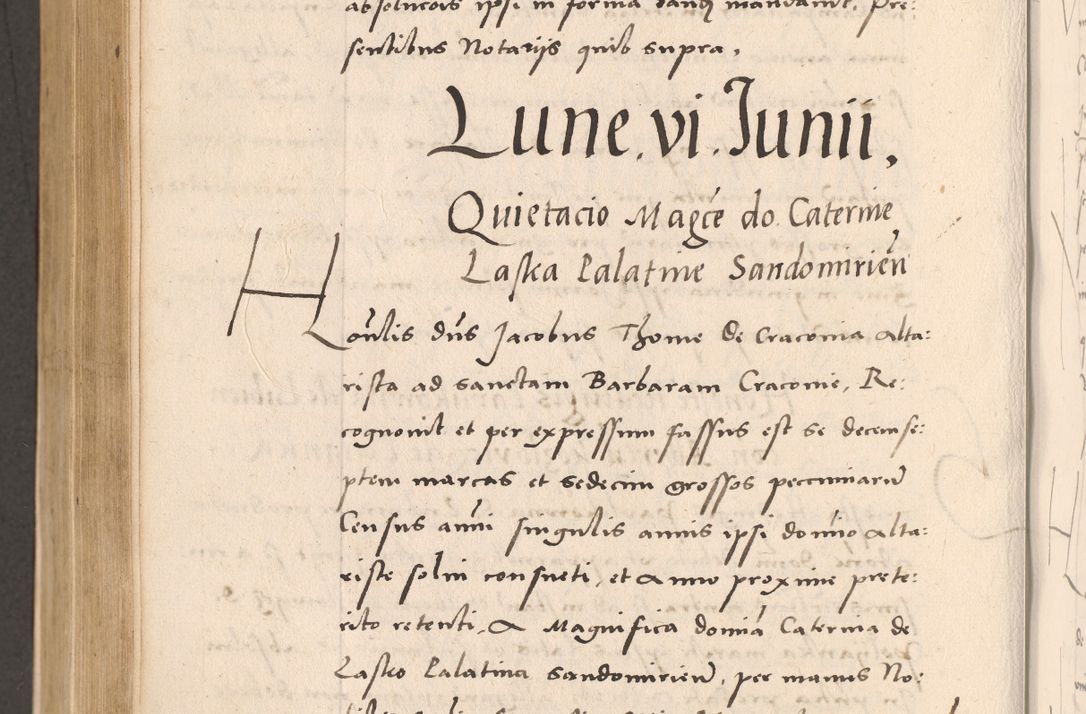 absolucois ipsi in forma
sentibus Notarijs quib supra,
Lune. vi. Junii,
Quietacio Magce do. Caterine
Laska Palatine Sandomirien
Honlis dns Jacobus Thome de Craconia Alta:
rista ad sanctam Barbaram Craconie, Re:
cognouit et per expressum fassus est se decemse:
ptem marcas et sedecim grossos peccuniaru
Census anni singulis annis ipsi domio Alta:
riste solui consueti, et Anno proxime prete:
rito retenti, A Magnifica domia Caterina de
Lasko Palatina Sandomirien, per manus No: